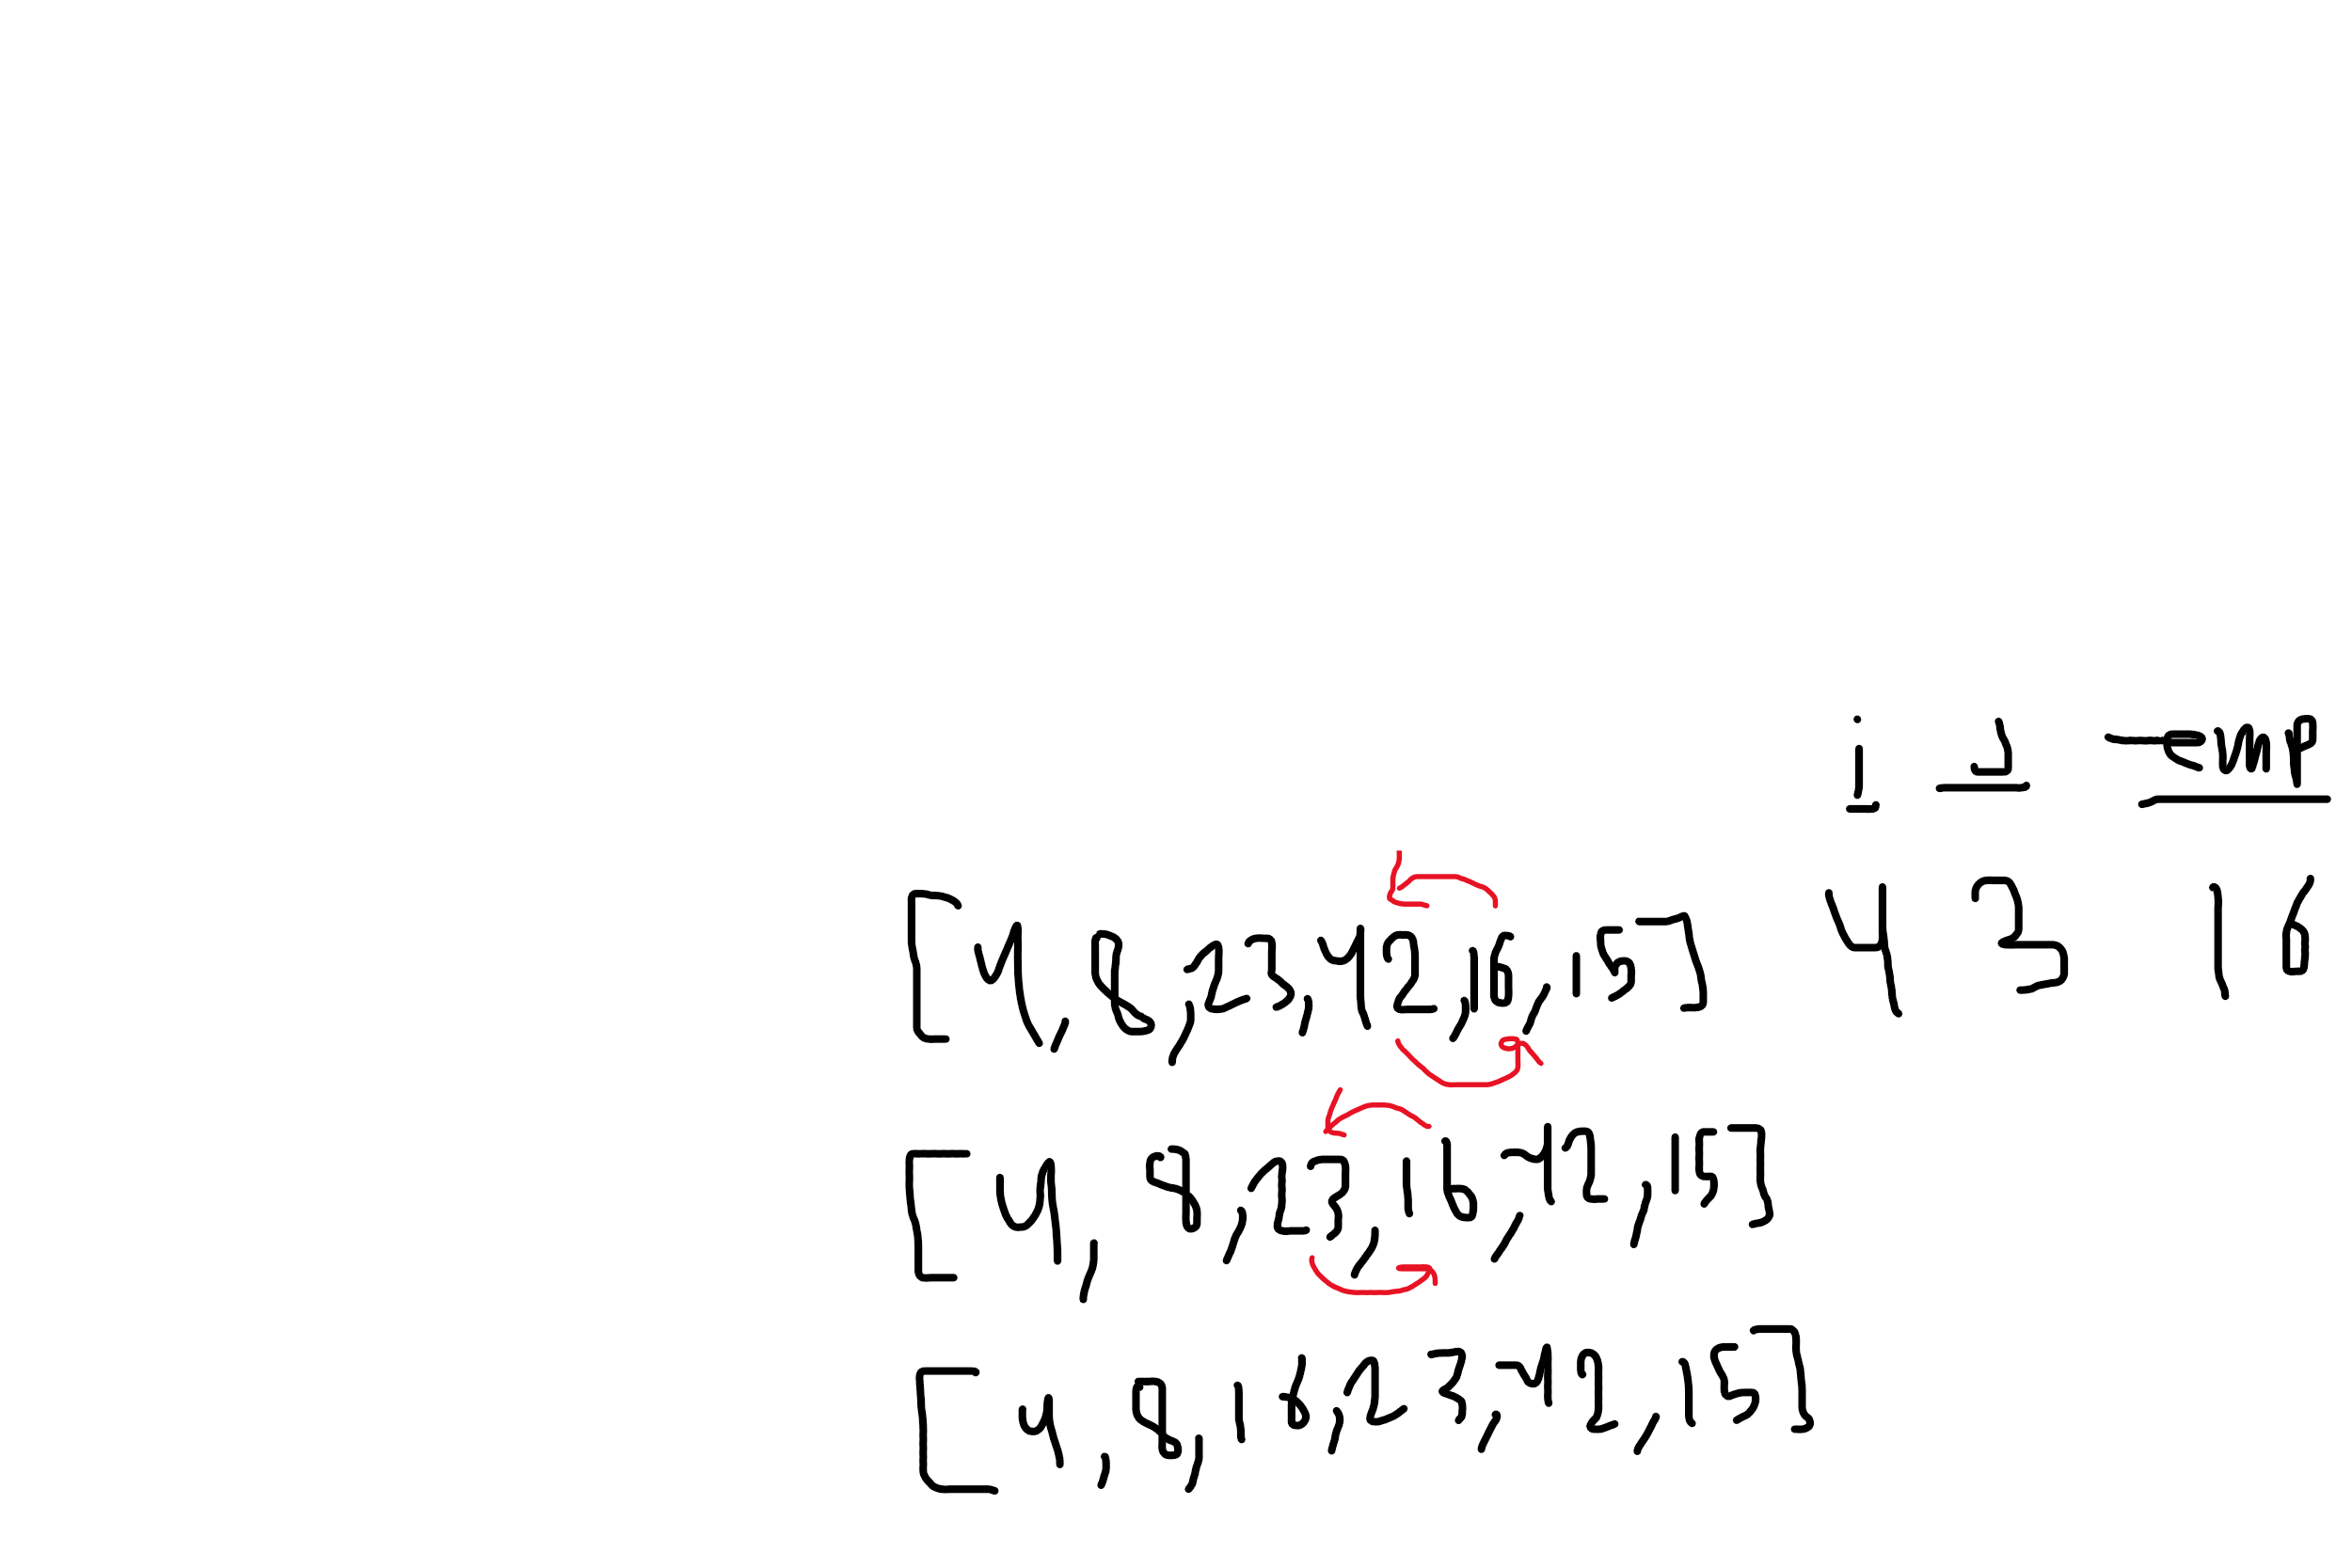 i j temp
[4,8,23,42,16,15] 4 3 16
[4,8,23,16,42,15]
[4,8,16,23,42,15]